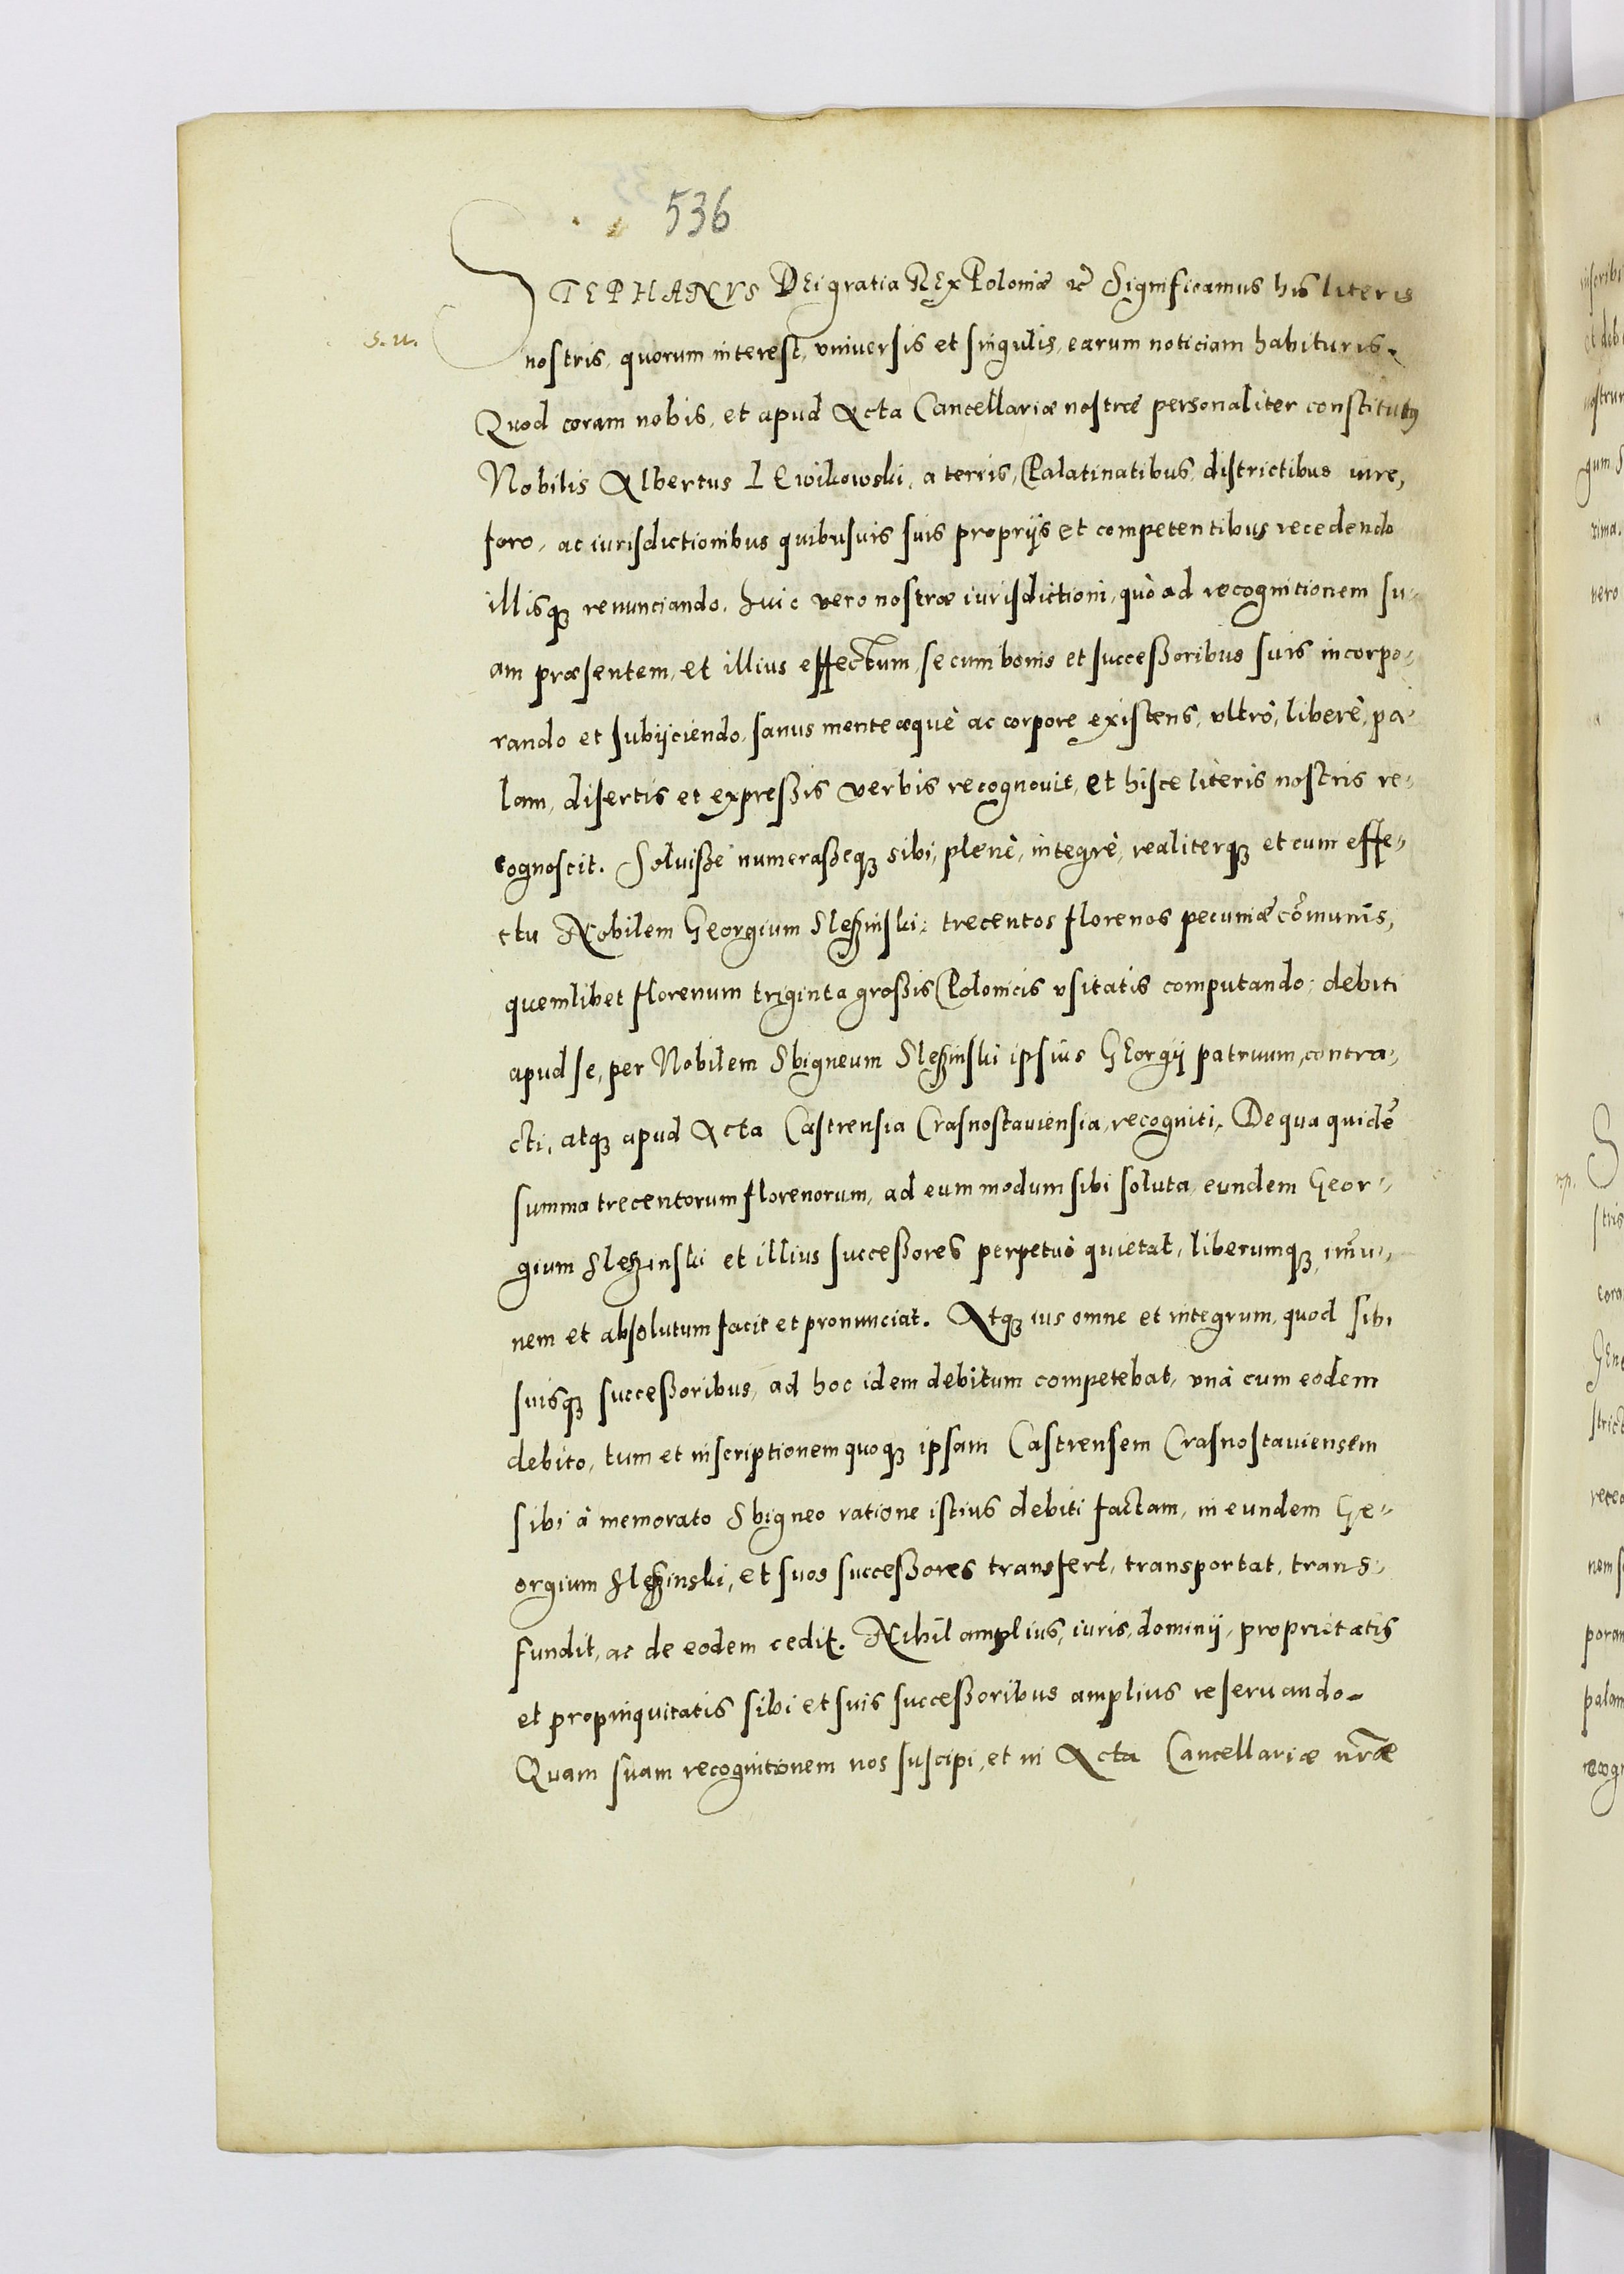 536
STEPHANVS DEi gratia REx Poloniæ etc̃ Significamus his literis
s. n.
nostris, quorum interest, vniuersis et singulis, earum noticiam habituris.
Quod coram nobis, et apud Acta Cancellariæ nostræ personaliter constitutꝰ
Nobilis Albertus LEwikowski, a terris, Palatinatibus, districtibus iure,
foro, ac iurisdictionibus quibusuis suis proprijs et competentibus recedendo
illisqꝫ renunciando, huic vero nostræ iurisdictioni, quò ad recognitionem su-
am præsentem, et illius effectum, se cum bonis et successoribus suis incorpo-
rando et subijciendo, sanus mente æquè ac corpore existens, vltrò, liberè, pa-
lam, disertis et expressis verbis recognouit, et hisce literis nostris re-
cognoscit. Soluisse numerasseqꝫ sibi, plenè, integrè, realiterqꝫ et cum effe-
ctu Nobilem Georgium Slezinski, trecentos florenos pecuniæ cõmunis,
quemlibet florenum triginta grossis Polonicis vsitatis computando, debiti
apud se, per Nobilem Sbigneum Slezinski ipsius GEorgij patruum, contra-
cti, atqꝫ apud Acta Castrensia Crasnostauiensia, recogniti. De qua quidẽ
summa trecentorum florenorum, ad eum modum sibi soluta, eundem Geor-
gium Slezinski et illius successores perpetuò quietat, liberumqꝫ, im̃u-
nem et absolutum facit et pronunciat. Atqꝫ ius omne et integrum, quod sibi
suisqꝫ successoribus, ad hoc idem debitum competebat, vnà cum eodem
debito, tum et inscriptionem quoqꝫ ipsam Castrensem Crasnostauiensem
sibi à memorato Sbigneo ratione istius debiti factam, in eundem Ge-
orgium Slezinski, et suos successores transfert, transportat, trans-
fundit, ac de eodem cedit. Nihil amplius, iuris, dominij, proprietatis
et propinquitatis sibi et suis successoribus amplius reseruando.
Quam suam recognitionem nos suscipi, et in Acta Cancellariæ nr̃æ